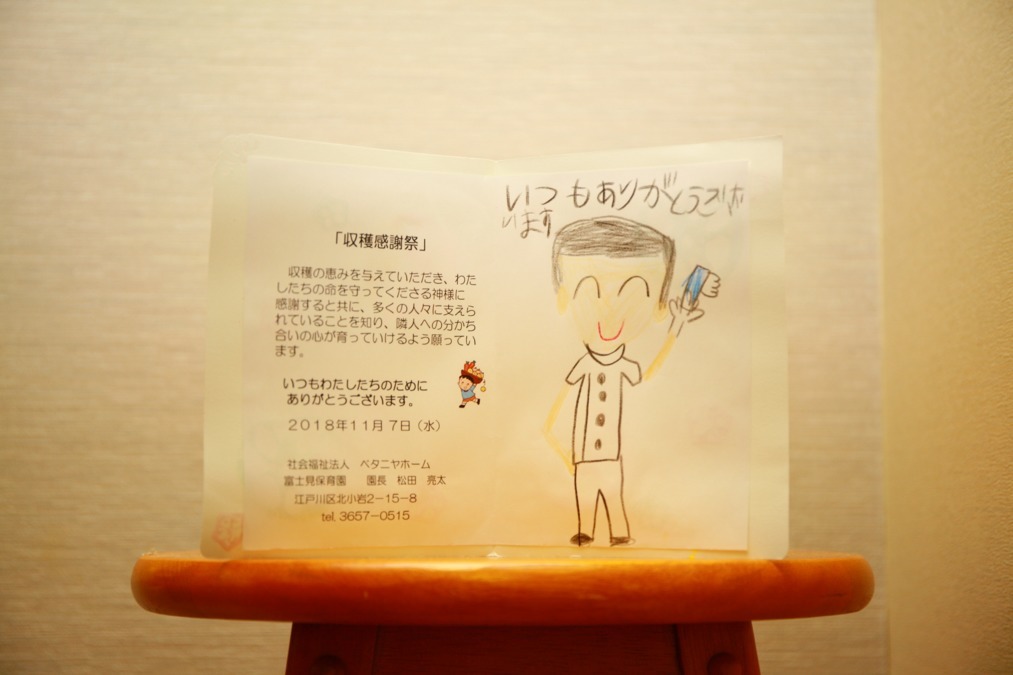 「収穫感謝祭」
収穫の恵みを与えていただき、わた
したちの命を守ってくださる神様に
感謝すると共に、多くの人々に支えら
れていることを知り、隣人への分かち
合いの心が育っていけるよう願ってい
ます。
いつもわたしたちのために
ありがとうございます。
2018年11月7日（水）
社会福祉法人　ベタニヤホーム
富士見保育園　園長　松田　亮太
江戸川区北小岩2－15－8
tel. 3657－0515
いつもありがとうござ
います